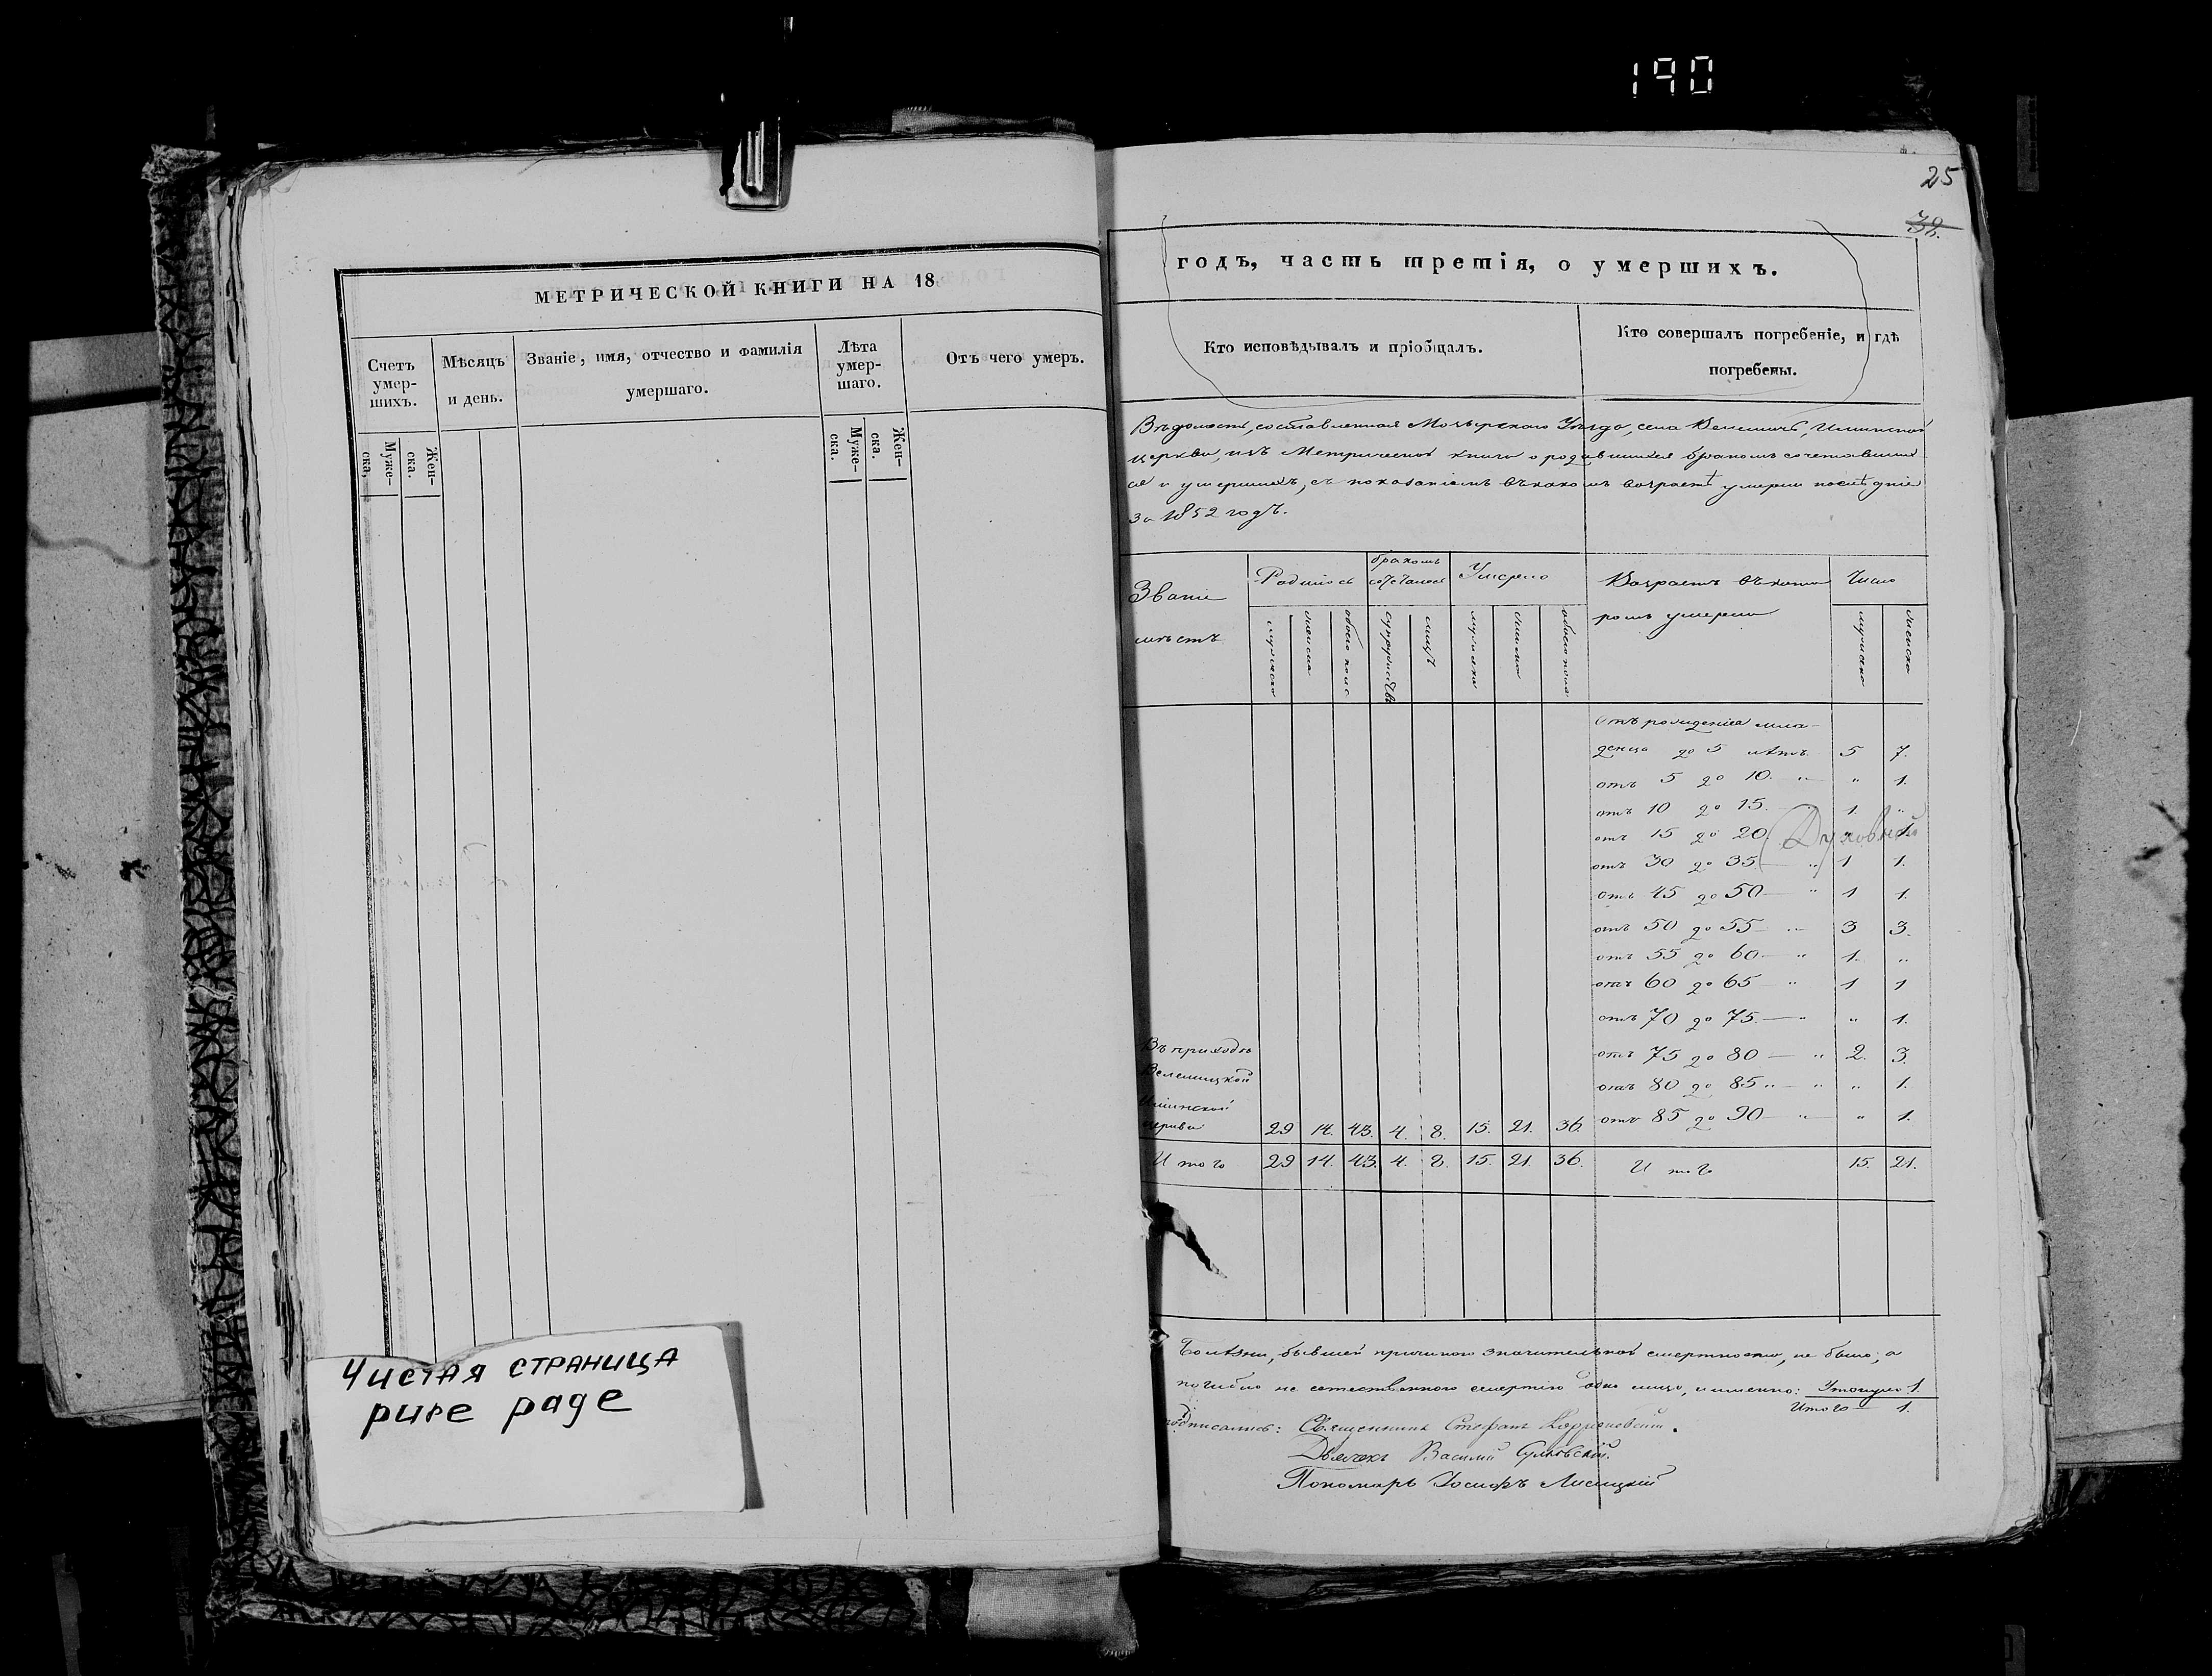 190
25
38.
МЕТРИЧЕСКОЙ КНИГИ НА 18
Счетъ умер-шихъ.
Муже-ска.
Жен-ска.
Мѣсяцъ и день.
Званіе, имя, отчество и фамилія
умершаго.
Лѣта умер-шаго.
Муже-ска.
Жен-ска.
Отъ чего умеръ.
Чистая страница
pure page
годъ, часть третія, о умершихъ.
Кто исповѣдывалъ и пріобщалъ.
Кто совершалъ погребеніе, и гдѣ
погребены.
Вѣдомость, составленная Мозырскаго Уѣзда, села Велемичь, Ильинской
церкви, изъ Метрической книги о родившихся бракомъ сочетавших
ся и умершихъ, съ показаніемъ въ какомъ возрастѣ умерли послѣдніе
за 1852 годъ.
Званіе
мѣстъ
Родилось
мужеска
женска
обоего пола
бракомъ
сочеталось
супружествъ
лицъ
Умерло
мужеска
женска
обоего пола
Возрастъ въ кото
ромъ умерли
Число
мужеска
женска
отъ рожденія мла-
денца до 5 лѣтъ 5 7.
отъ 5 до 10. " " 1.
отъ 10 до 15. 1. "
отъ 15 до 20 " 1.
Духовной
отъ 30 до 35 " 1 1.
отъ 45 до 50 " 1 1.
отъ 50 до 55 " 3 3.
отъ 55 до 60 " 1. "
отъ 60 до 65 " 1 1
отъ 70 до 75. " " 1.
отъ 75 до 80 " 2. 3.
отъ 80 до 85 " " 1.
отъ 85 до 90 " " 1.
Въ приходѣ
Велемицкой
Ильинской
церкви 29 14. 43. 4. 8. 15. 21. 36.
Итого 29 14. 43. 4. 8. 15. 21. 36. Итого 15. 21.
Болѣзни, бывшей причиною значительной смертности, не было; а
погибло не естественною смертію одно лицо, именно: Утонуло 1.
Итого 1.
Подписались: Священникъ Стефанъ
Дьячекъ Василій
Пономарь Іосифъ Лисицкій